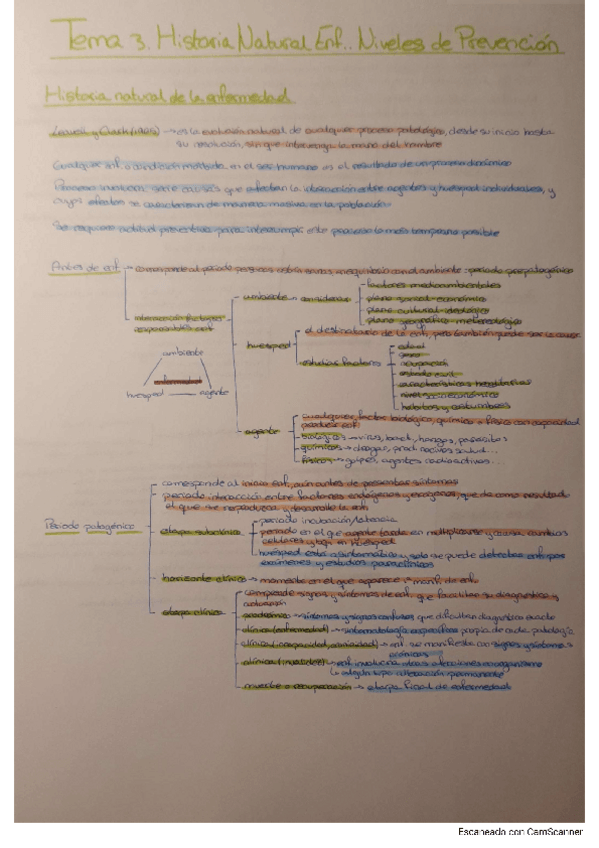 Tema 3. Historia Natural Enf.. Niveles de Prevención
Historia natural de la enfermedad
Leavell y Clark (1965) → es la evolución natural de cualquier proceso patológico, desde su inicio hasta
su resolución, sin que intervenga la mano del hombre
Cualquier enf. o condición mórbida en el ser humano es el resultado de un proceso dinámico
Proceso involucra serie causas que afectan la interacción entre agentes y huésped individuales, y
cuyos efectos se caracterizan de manera masiva en la población
Se requiere actitud preventiva para interrumpir este proceso lo más temprano posible
Antes de enf. → corresponde al periodo personas están sanas, en equilibrio con el ambiente : periodo prepatogénico
interacción factores
responsables enf
ambiente
enfermedad
huésped
agente
ambiente → considerar
factores medioambientales
plano social-económico
plano cultural-ideológico
plano geográfico-meteorológico
huésped
el destinatario de la enf, pero también puede ser la causa
estudiar factores
edad
sexo
ocupación
estado civil
características hereditarias
nivel socioeconómico
hábitos y costumbres
agente
cualquier factor biológico, químico o físico con capacidad
producir enf
biológicos → virus, bact., hongos, parásitos
químicos → drogas, prod. nocivos salud...
físicos → golpes, agentes radioactivos...
Periodo patogénico
corresponde al inicio enf., aún antes de presentar síntomas
periodo interacción entre factores endógenos y exógenos, que da como resultado
el que se reproduzca y desarrolle la enf.
etapa subclínica
periodo incubación/latencia
periodo en el que agente tarda en multiplicarse y causa cambios
celulares y en huésped
huésped está asintomático y solo se puede detectar enf. por
exámenes y estudios paraclínicos
horizonte clínico → momento en el que aparece 1ª manif. de enf.
etapa clínica
comprende signos y síntomas de enf. que facilitan su diagnóstico y
pródromos → síntomas y signos confusos que dificultan diagnóstico exacto
clínica (enfermedad) → sintomatología específica propia de cada patología
clínica (incapacidad, cronicidad) → enf. se manifiesta con signos y síntomas
crónicos
clínica (invalidez) → enf. involucra otras afecciones en organismo
algún tipo alteración permanente
muerte o recuperación → etapa final de enfermedad
Escaneado con CamScanner